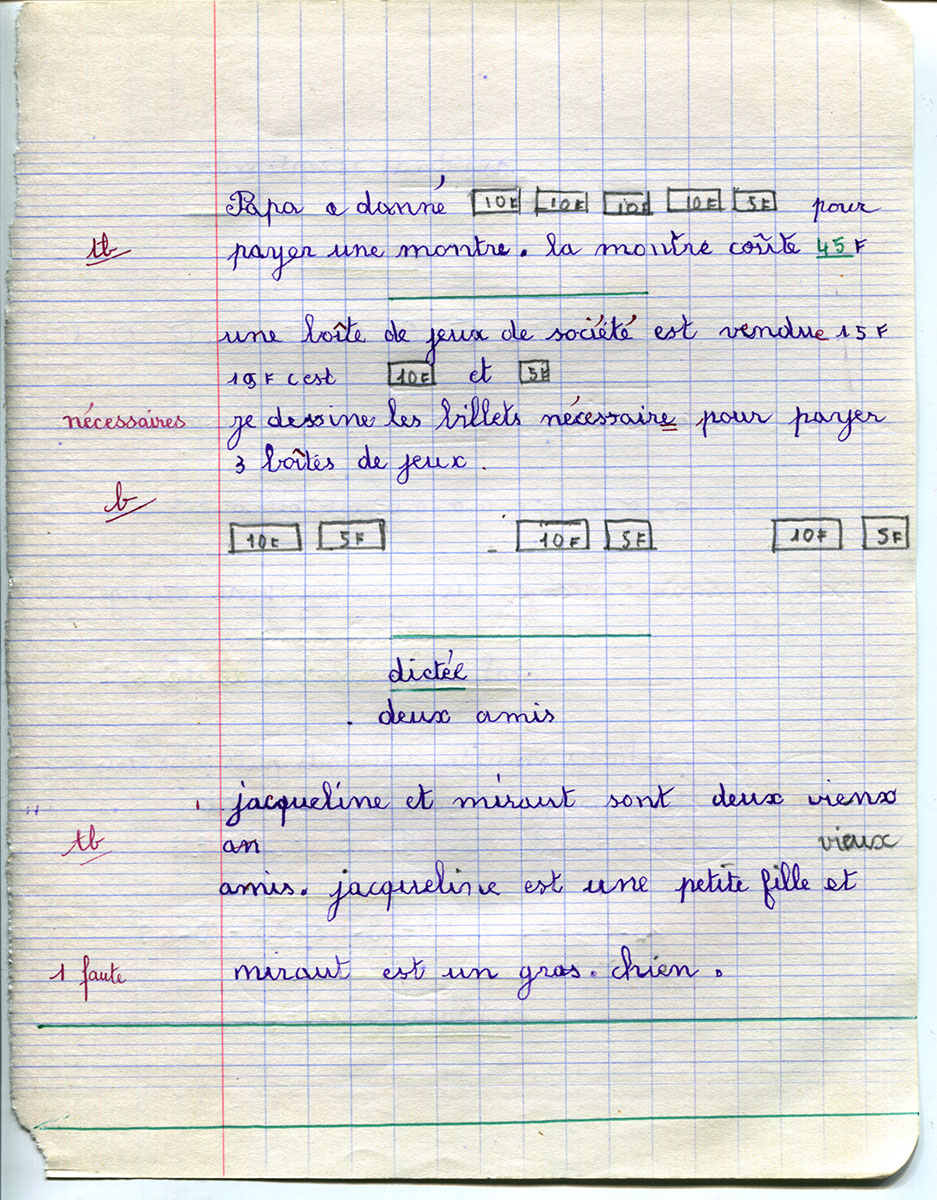 Papa a donné 10F 10F 10F 10F 5F pour
tb payer une montre. la montre coûte 45 F
une boîte de jeux de société est vendue 15 F
15 F c est 10F et 5F
nécessaires je dessine les billets nécessaire pour payer
3 boîtes de jeux.
b
10F 5F 10F 5F 10F 5F
dictée
deux amis
jacqueline et miraut sont deux vienx
tb an vieux
amis. jacqueline est une petite fille et
1 faute miraut est un gros. chien.